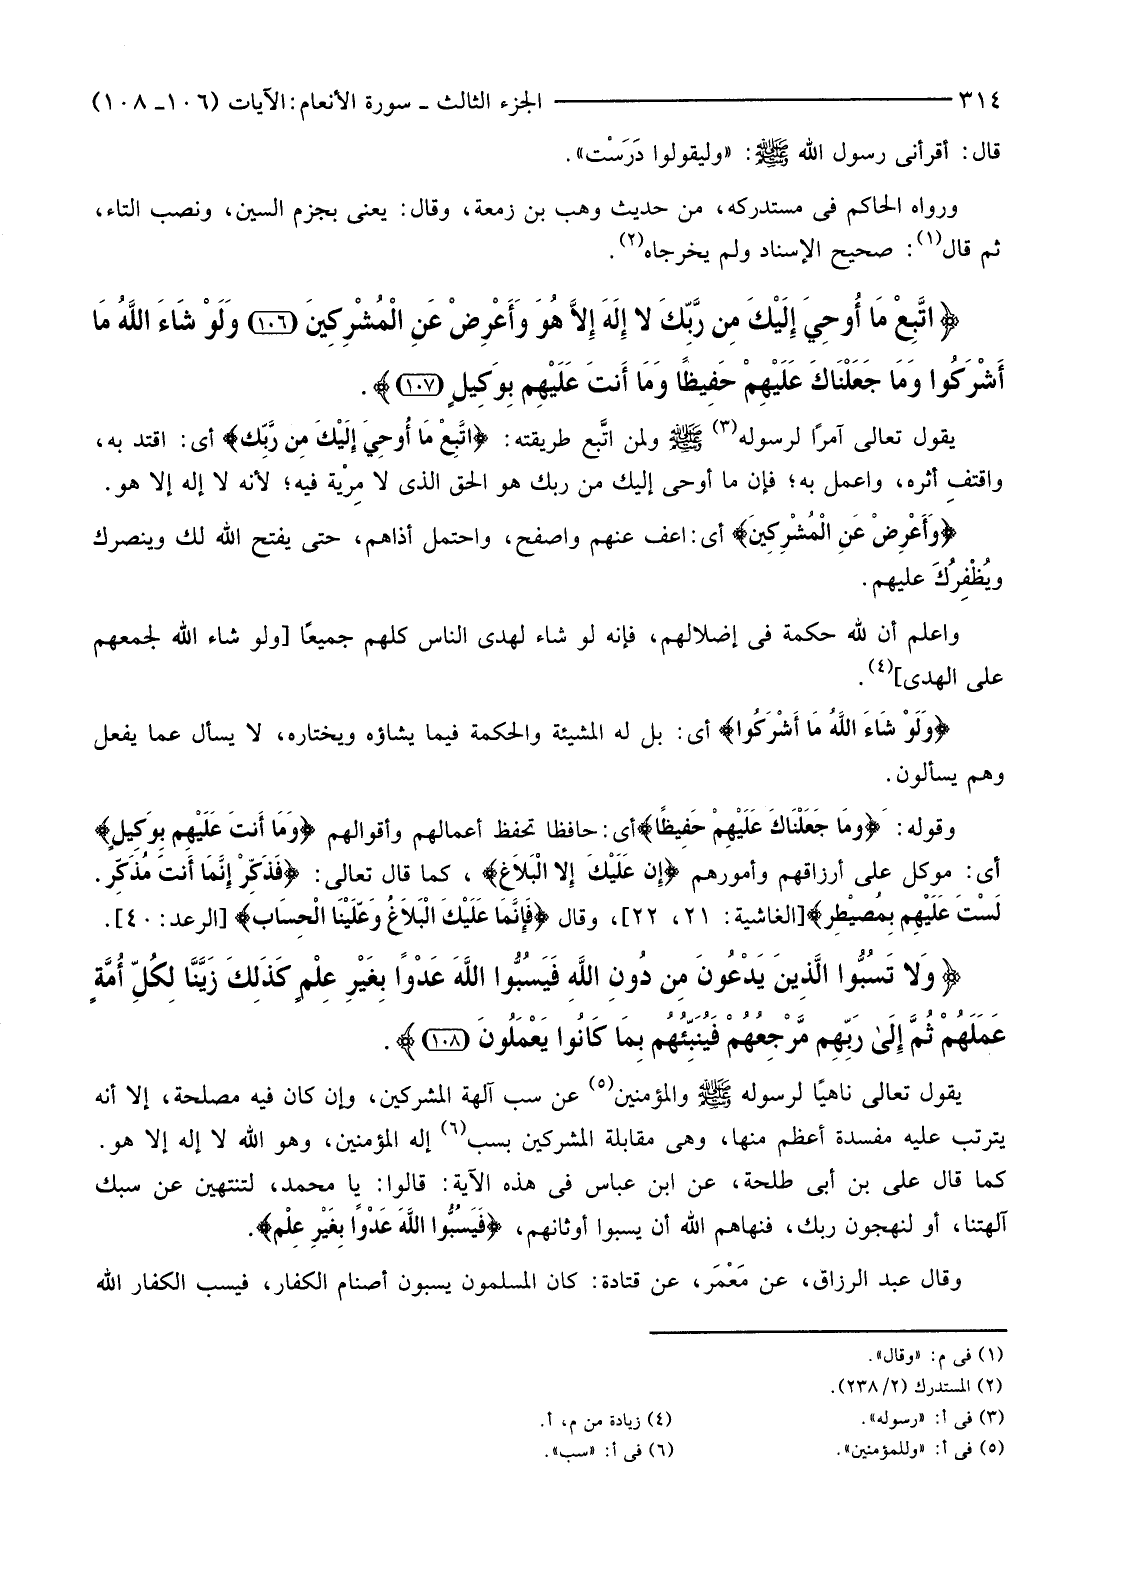 ٣١٤ ــــــــــــ الجزء الثالث ـ سورة الأنعام: الآيات (١٠٦ـ ١٠٨)
قال: أقرأنى رسول الله ﷺ: «وليقولوا دَرَسْت».
ورواه الحاكم فى مستدركه، من حديث وهب بن زمعة، وقال: يعنى بجزم السين، ونصب التاء،
ثم قال(١): صحيح الإسناد ولم يخرجاه(٢).
﴿ اتَّبِعْ مَا أُوحِيَ إِلَيْكَ مِن رَّبِّكَ لا إِلَهَ إِلاَّ هُوَ وَأَعْرِضْ عَنِ الْمُشْرِكِينَ (١٠٦) وَلَوْ شَاءَ اللَّهُ مَا
أَشْرَكُوا وَمَا جَعَلْنَاكَ عَلَيْهِمْ حَفِيظًا وَمَا أَنتَ عَلَيْهِم بِوَكِيلٍ (١٠٧) ﴾ .
يقول تعالى آمرًا لرسوله(٣) ﷺ ولمن اتَّبع طريقته: ﴿اتَّبِعْ مَا أُوحِيَ إِلَيْكَ مِن رَّبِّك﴾ أى: اقتد به،
واقتفِ أثره، واعمل به؛ فإن ما أوحى إليك من ربك هو الحق الذى لا مِرْية فيه؛ لأنه لا إله إلا هو.
﴿وَأَعْرِضْ عَنِ الْمُشْرِكِينَ﴾ أى: اعف عنهم واصفح، واحتمل أذاهم، حتى يفتح الله لك وينصرك
ويُظْفِرُكَ عليهم.
واعلم أن لله حكمة فى إضلالهم، فإنه لو شاء لهدى الناس كلهم جميعًا [ولو شاء الله لجمعهم
على الهدى](٤).
﴿وَلَوْ شَاءَ اللَّهُ مَا أَشْرَكُوا﴾ أى: بل له المشيئة والحكمة فيما يشاؤه ويختاره، لا يسأل عما يفعل
وهم يسألون.
وقوله: ﴿وَمَا جَعَلْنَاكَ عَلَيْهِمْ حَفِيظًا﴾أى: حافظا تحفظ أعمالهم وأقوالهم ﴿وَمَا أَنتَ عَلَيْهِم بِوَكِيلٍ﴾
أى: موكل على أرزاقهم وأمورهم ﴿إِن عَلَيْكَ إِلا الْبَلاَغ﴾ ، كما قال تعالى: ﴿فَذَكِّرْ إِنَّمَا أَنتَ مُذَكِّر.
لَسْتَ عَلَيْهِم بِمُصَيْطِر﴾[الغاشية: ٢١، ٢٢]، وقال ﴿فَإِنَّمَا عَلَيْكَ الْبَلاَغُ وَعَلَيْنَا الْحِسَاب﴾ [الرعد: ٤٠].
﴿ وَلا تَسُبُّوا الَّذِينَ يَدْعُونَ مِن دُونِ اللَّهِ فَيَسُبُّوا اللَّهَ عَدْوًا بِغَيْرِ عِلْمٍ كَذَلِكَ زَيَّنَّا لِكُلِّ أُمَّةٍ
عَمَلَهُمْ ثُمَّ إِلَىٰ رَبِّهِم مَّرْجِعُهُمْ فَيُنَبِّئُهُم بِمَا كَانُوا يَعْمَلُونَ (١٠٨) ﴾ .
يقول تعالى ناهيًا لرسوله ﷺ والمؤمنين(٥) عن سب آلهة المشركين، وإن كان فيه مصلحة، إلا أنه
يترتب عليه مفسدة أعظم منها، وهى مقابلة المشركين بسب(٦) إله المؤمنين، وهو الله لا إله إلا هو.
كما قال على بن أبى طلحة، عن ابن عباس فى هذه الآية: قالوا: يا محمد، لتنتهين عن سبك
آلهتنا، أو لنهجون ربك، فنهاهم الله أن يسبوا أوثانهم، ﴿فَيَسُبُّوا اللَّهَ عَدْوًا بِغَيْرِ عِلْم﴾.
وقال عبد الرزاق، عن مَعْمَر، عن قتادة: كان المسلمون يسبون أصنام الكفار، فيسب الكفار الله
(١) فى م: «وقال».
(٢) المستدرك (٢/ ٢٣٨).
(٣) فى أ: «رسوله».
(٤) زيادة من م، أ.
(٥) فى أ: «وللمؤمنين».
(٦) فى أ: «سب».